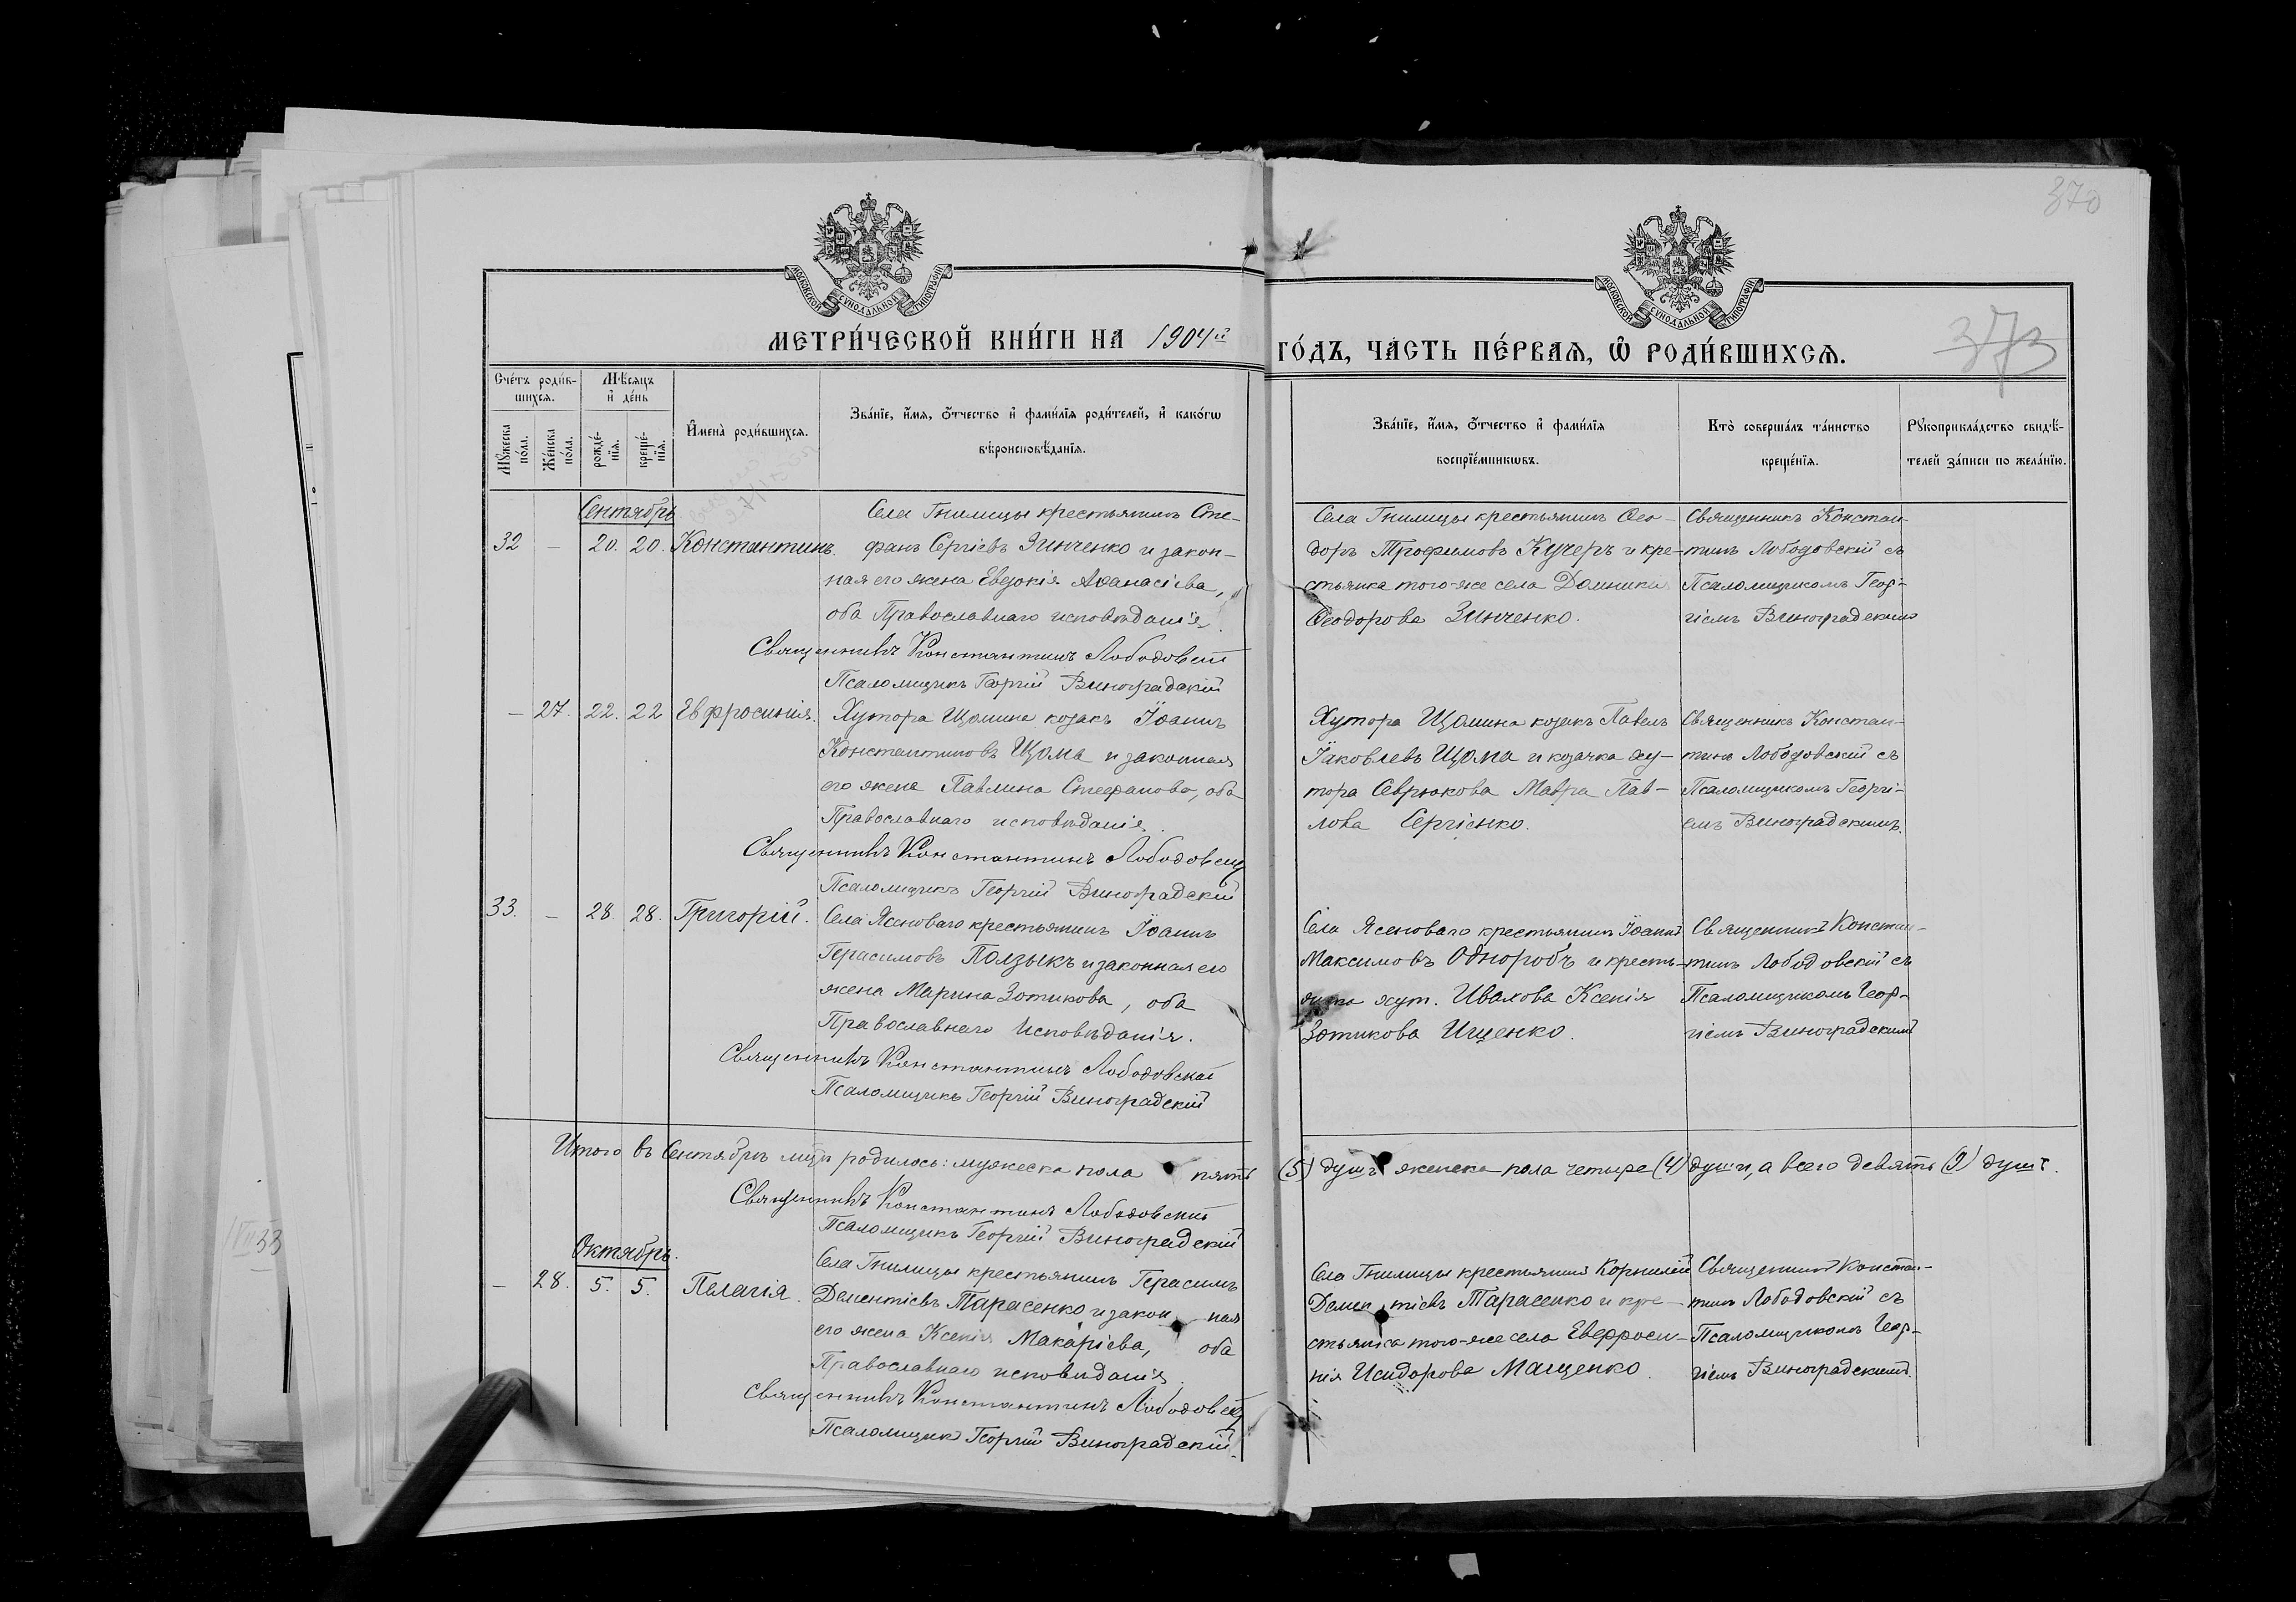 370
373
МОСКОВСКОЙ СѴНОДАЛЬНОЙ ТИПОГРАФІИ
МОСКОВСКОЙ СѴНОДАЛЬНОЙ ТИПОГРАФІИ
МЕТРИ́ЧЕСКОЙ КНИ́ГИ НА 1904й
ГО́ДЪ, ЧА́СТЬ ПЕ́РВАЯ, Ѡ РОДИ́ВШИХСЯ.
Сче́тъ роди́вшихся.
Му́жеска по́ла.
Же́нска по́ла.
Мѣ́сяцъ и де́нь
рожде́нїя.
креще́нїя.
Имена̀ роди́вшихся.
Зва́нїе, и́мя, о́тчество и фами́лїя роди́телей, и како́гѡ
вѣроисповѣ́данїя.
Зва́нїе, и́мя, о́тчество и фами́лїя
воспрїе́мникѡвъ.
Кто̀ соверша́лъ та́инство
креще́нїя.
Рꙋкоприкла́дство свидѣ́-
телей за́писи по жела́нїю.
Сентябрь
32 — 20. 20. Константинъ.
Села Гнилицы крестьянинъ Сте-
фанъ Сергіевъ Зинченко и закон-
ная его жена Евдокія Аѳанасіева,
оба Православнаго исповѣданія.
Священникъ Константинъ Лободовскій
Псаломщикъ Георгій Виноградскій
Села Гнилицы крестьянинъ Ѳео-
доръ Трофимовъ Кучеръ и кре-
стьянка того-же села Домникія
Ѳеодорова Зинченко.
Священникъ Констан-
тинъ Лободовскій съ
Псаломщикомъ Геор-
гіемъ Виноградскимъ
— 27. 22. 22 Евфросинія.
Хутора Щомина козакъ Іоаннъ
Константиновъ Щома и законная
его жена Павлина Стефанова, оба
Православнаго исповѣданія.
Священникъ Константинъ Лободовскій
Псаломщикъ Георгій Виноградскій
Хутора Щомина козакъ Павелъ
Іаковлевъ Щома и козачка ху-
тора Севрюкова Мавра Пав-
лова Сергіенко.
Священникъ Констан-
тинъ Лободовскій съ
Псаломщикомъ Георгі-
емъ Виноградскимъ.
33. — 28. 28. Григорій.
Села Ясеноваго крестьянинъ Іоаннъ
ГерасимовъПолзыкъ и законная его
жена Марина Зотикова, оба
Православнаго исповѣданія.
Священникъ Константинъ Лободовскій
Псаломщикъ Георгій Виноградскій
Села Ясеноваго крестьянинъ Іоаннъ
Максимовъ Одноробъ и кресть-
янка хут. Ивахова Ксенія
Зотикова Ищенко.
Священникъ Констан-
тинъ Лободовскій съ
Псаломщикомъ Геор-
гіемъ Виноградскимъ
Итого въ Сентябрѣ мцѣ родилось: мужеска пола пять (5) душъ женска пола четыре (4) души, а всего девять (9) душъ.
Священникъ Константинъ Лободовскій
Псаломщикъ Георгій Виноградскій
Октябрь.
— 28. 5. 5. Пелагія.
Села Гнилицы крестьянинъ Герасимъ
Дементіевъ Тарасенко и законная
его жена Ксенія Макаріева, оба
Православнаго исповѣданія.
Священникъ Константинъ Лободовскій
Псаломщикъ Георгій Виноградскій.
Села Гнилицы крестьянинъ Корнилій
Дементіевъ Тарасенко и кре-
стьянка того-же села Евфроси-
нія Исидорова Мащенко.
Священникъ Констан-
тинъ Лободовскій съ
Псаломщикомъ Геор-
гіемъ Виноградскимъ.